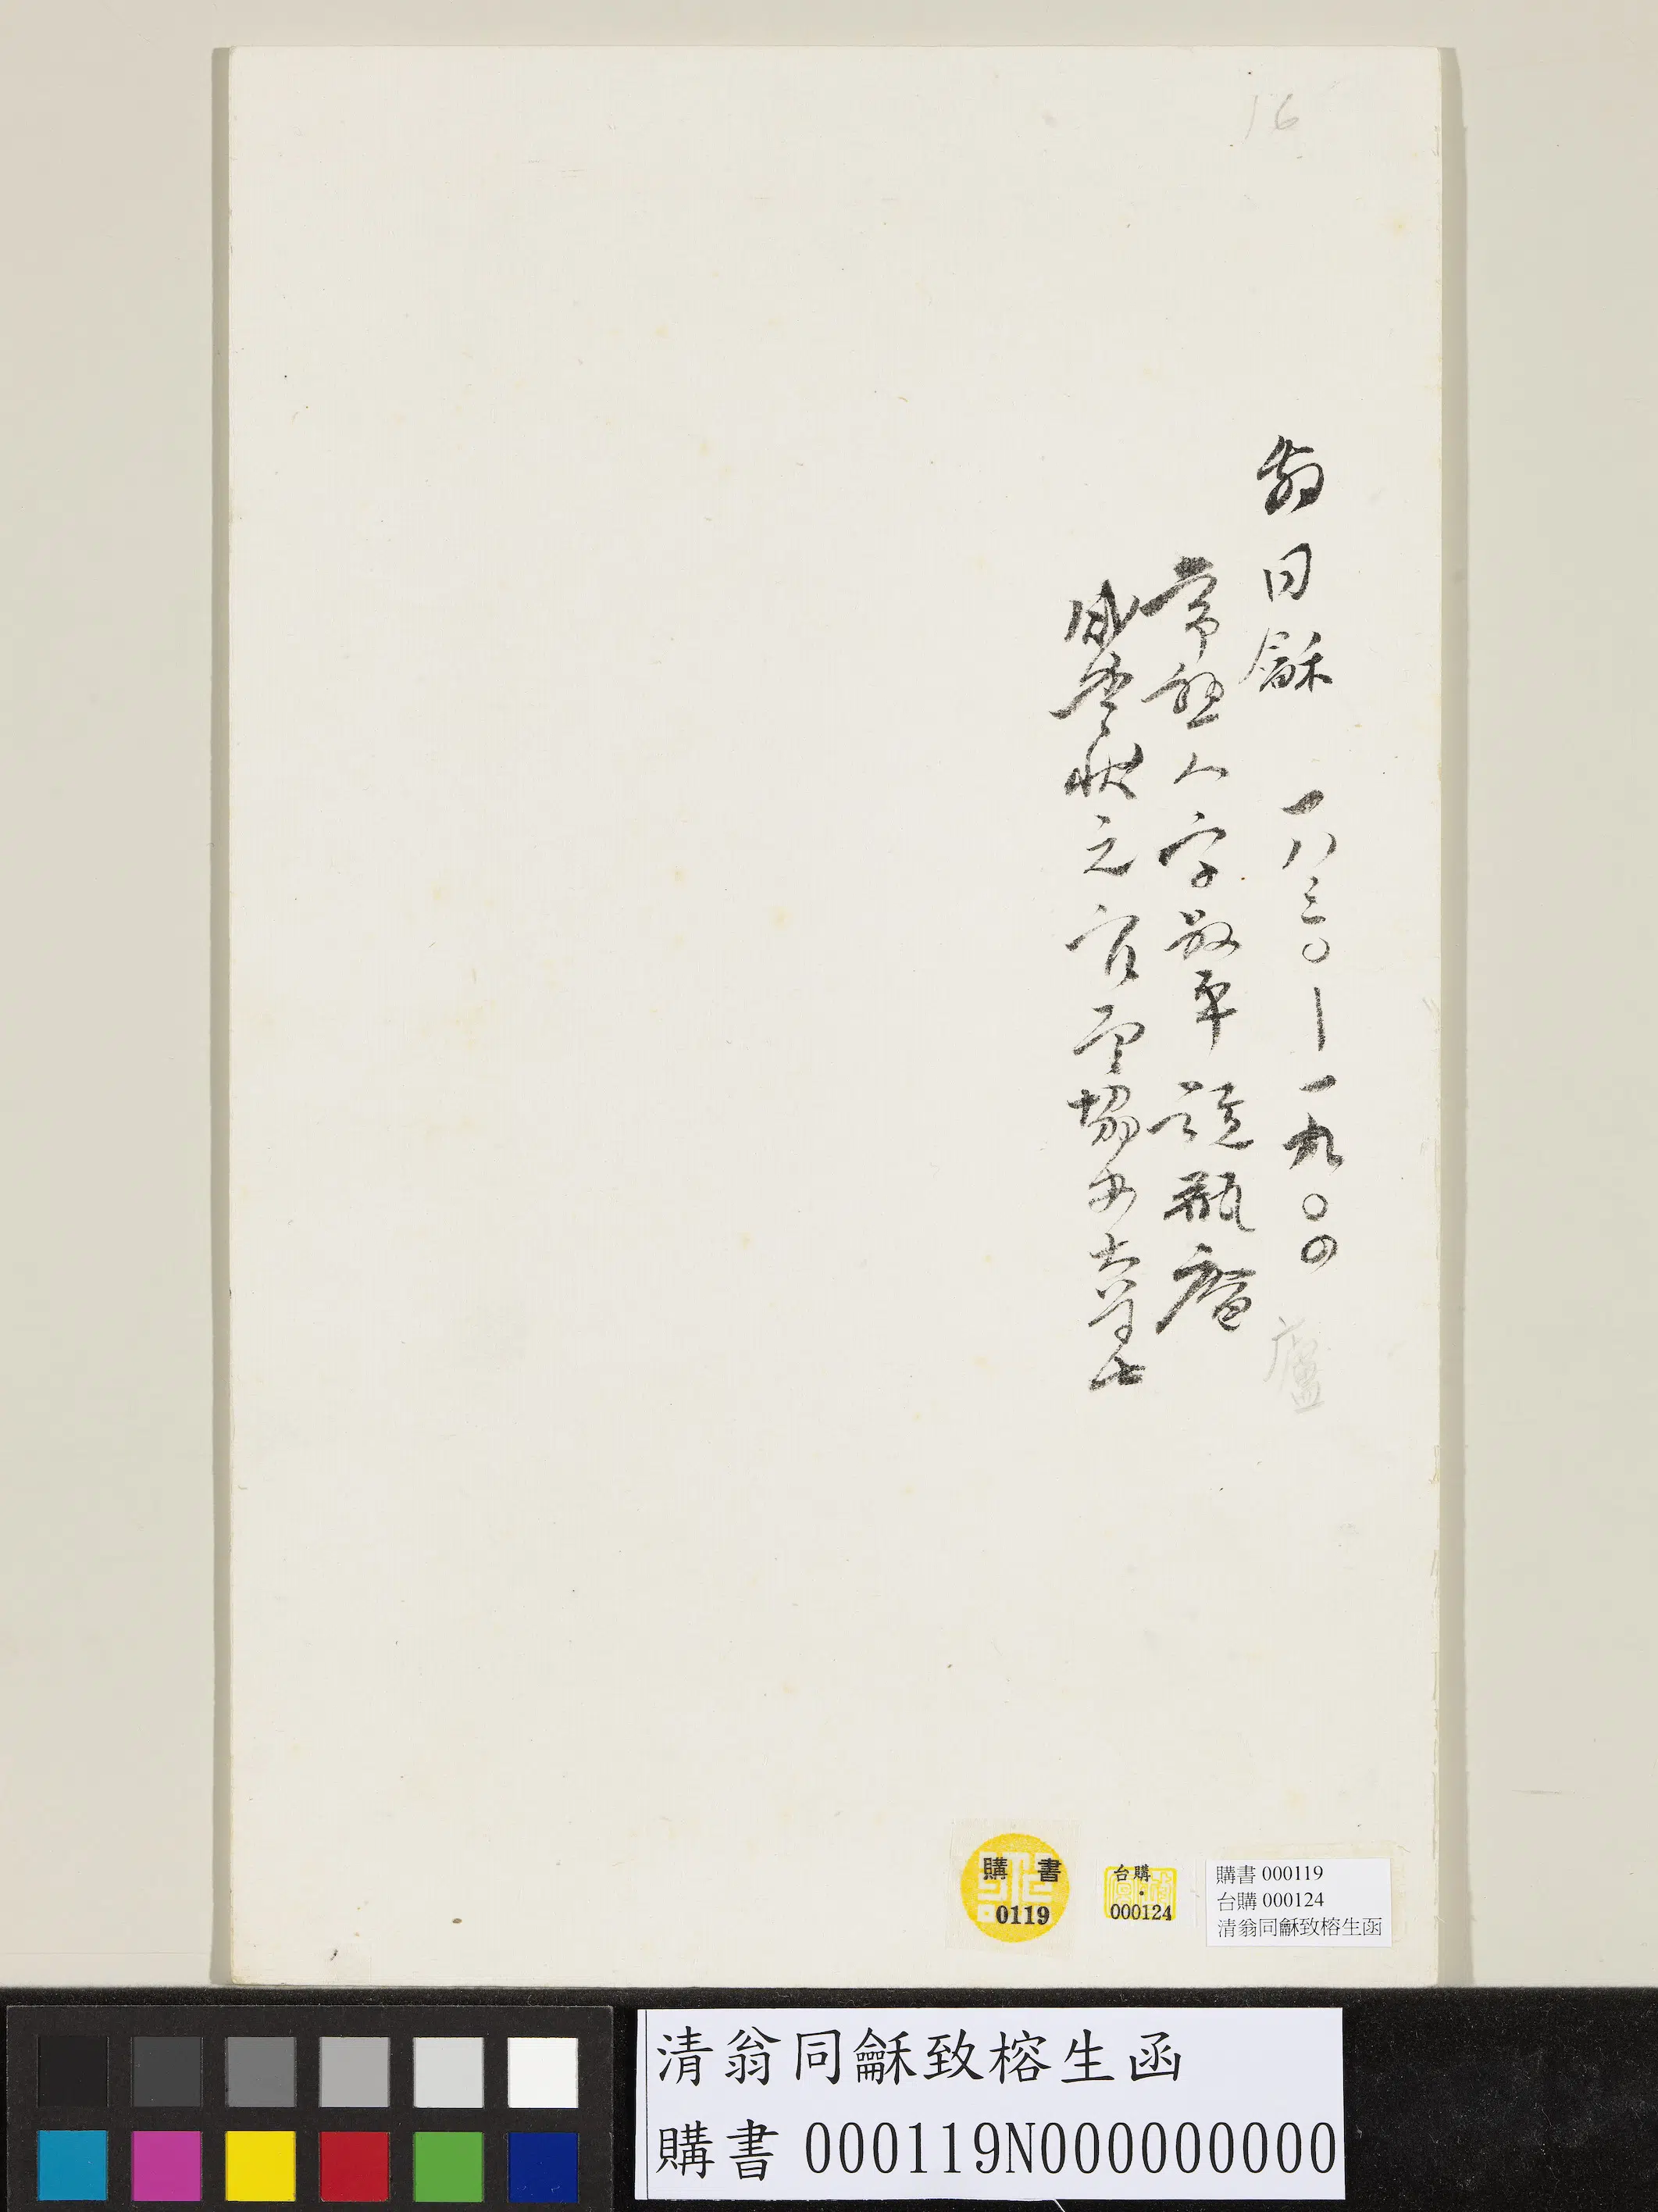 16
翁同龢 一八三〇—一九〇四
常熟人字叔平號瓶庵
廬
咸豐狀元官至協办大學士
購書
0119
台購
000124
購書 000119
台購 000124
清翁同龢致榕生函
清翁同龢致榕生函
購書 000119N000000000